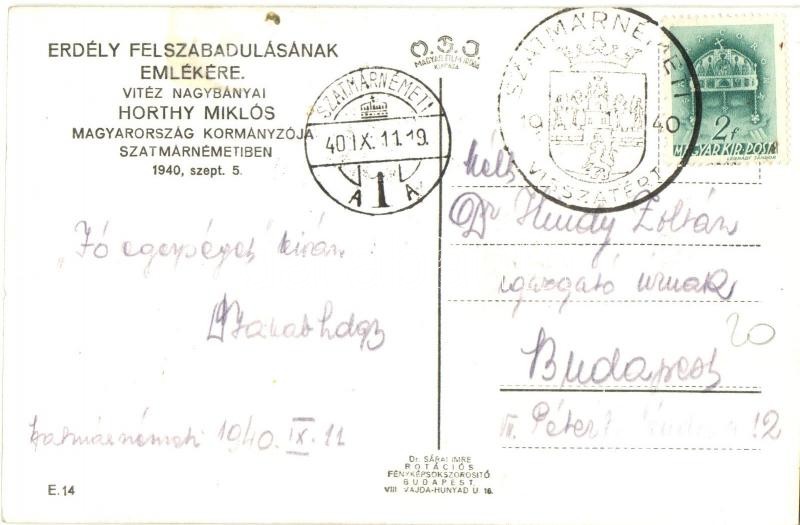 ERDÉLY FELSZABADULÁSÁNAK
EMLÉKÉRE.
VITÉZ NAGYBÁNYAI
HORTHY MIKLÓS
MAGYARORSZÁG KORMÁNYZÓJA
SZATMÁRNÉMETIBEN
1940, szept. 5.
MAGYAR FILM IRODA
KIADÁSA
SZATMÁRNÉMETI
40 IX. 11.19.
A 1 A
SZATMÁRNÉMETI
19 40
VISSZATÉRT
2f
MAGYAR KIR. POSTA
LÉGRÁDY SÁNDOR
Dr Zoltán
igazgató úrnak
Budapest
20
"Jó egészséget" kíván
Szatmárnémeti 1940. IX. 11
12
Dr. SÁRAI IMRE
ROTÁCIÓS
FÉNYKÉPSOKSZOROSITÓ
BUDAPEST
VIII VAJDA-HUNYAD U. 16.
E.14